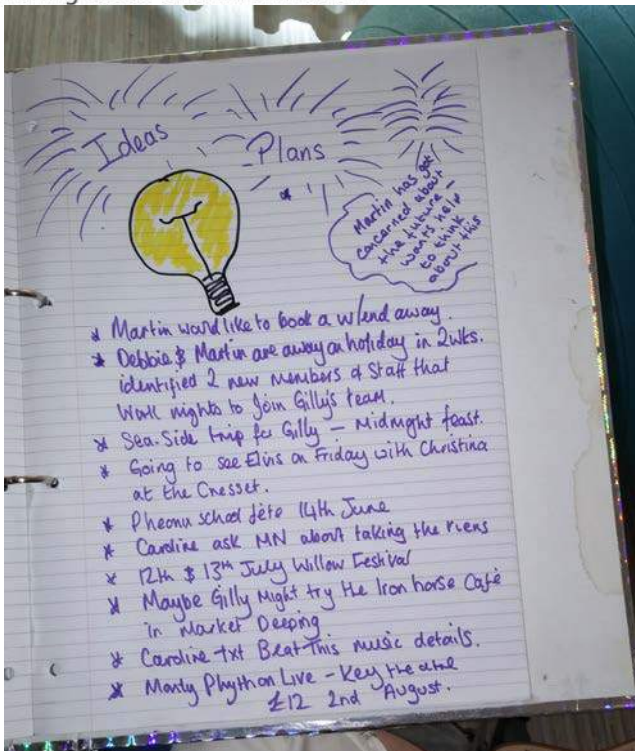 Ideas
Plans
Martin has got
concerned about
the future -
wants help
to think
about this
* Martin would like to book a w/end away.
* Debbie & Martin are away on holiday in 2wks.
identified 2 new members of Staff that
Work nights to join Gilly's team.
* Sea-Side trip for Gilly - Midnight feast.
* Going to see Elvis on Friday with Christina
at the Cresset.
* school fete 14th June
* Caroline ask MN about taking the
* 12th & 13th July Willow Festival
* Maybe Gilly Might try the Iron horse Café
in Market Deeping
* Caroline txt Beat This music details.
* Monty Phython Live - Key theatre
£12 2nd August.